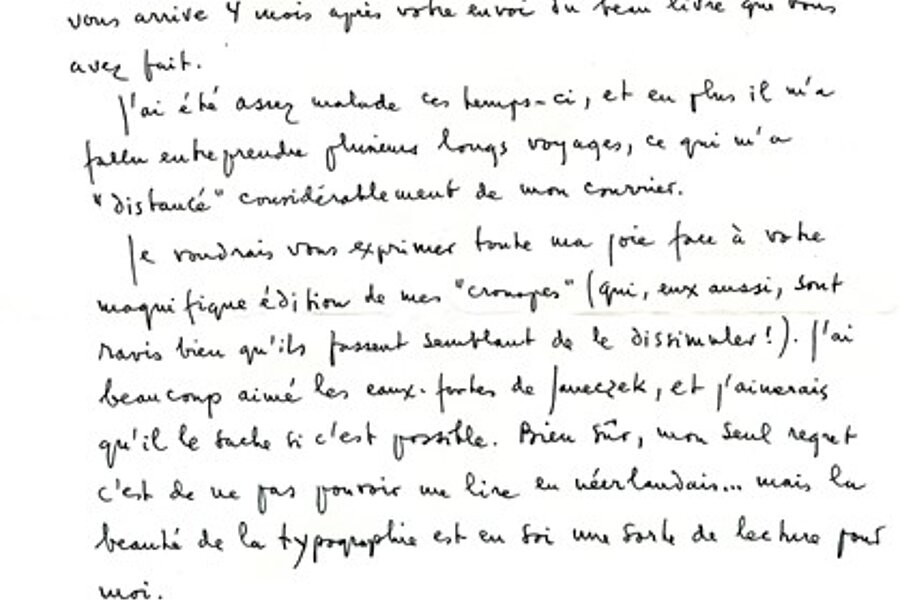 vous arrive 4 mois après votre envoi du beau livre que vous
avez fait.
J'ai été assez malade ces temps-ci, et en plus il m'a
fallu entreprendre plusieurs longs voyages, ce qui m'a
"distancé" considérablement de mon courrier.
Je voudrais vous exprimer toute ma joie face à votre
magnifique édition de mes "cronopes" (qui, eux aussi, sont
ravis bien qu'ils fassent semblant de le dissimuler!). J'ai
beaucoup aimé les eaux-fortes de Janeczek, et j'aimerais
qu'il le sache si c'est possible. Bien sûr, mon seul regret
c'est de ne pas pouvoir me lire en néerlandais... mais la
beauté de la typographie est en soi une sorte de lecture pour
moi.